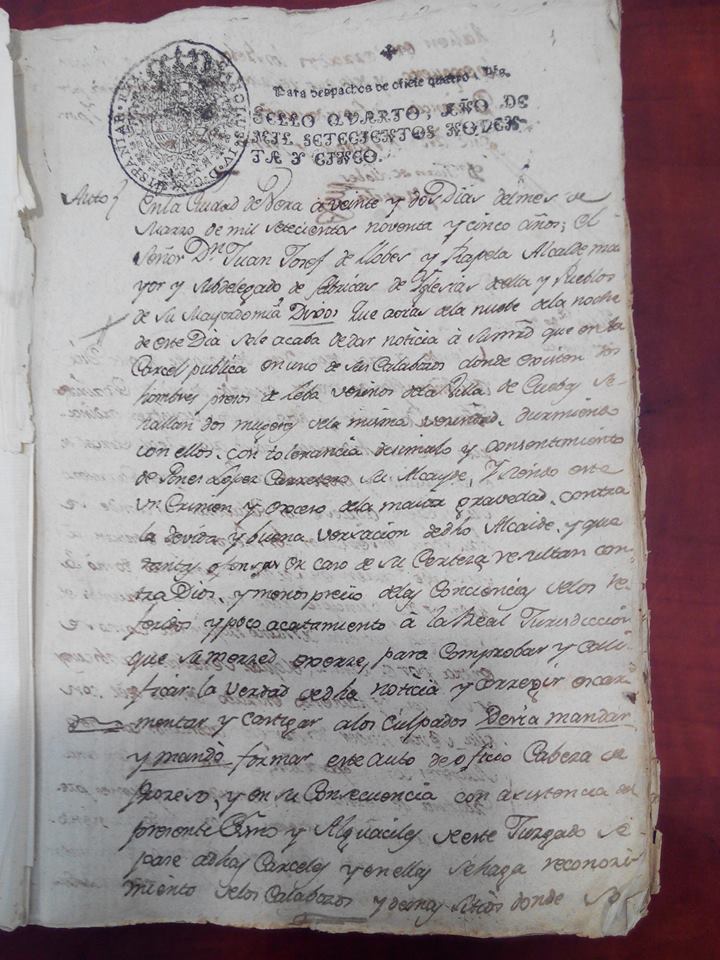 HISPANIAR. REX CAROLUS IV. D. G.
Para despachos de oficio quatro mrs.
SELLO QVARTO, AÑO DE
MIL SETECIENTOS NOVEN
TA Y CINCO.
Auto
En la Ciudad de Vera a veinte y dos Dias del mes de
Marzo de mil setecientos noventa y cinco años; el
Señor Dn. Juan Josef de Llobes y Rapela Alcalde ma
yor y subdelegado de fabricas de Yglesias de ella y Pueblos
de su Mayordomia Dixo: que aoras de la nuebe de la noche
de este Dia se le acaba de dar noticia à su mrd que en la
Carcel publica en uno de sus Calabozos donde existen los
hombres presos de leba vezinos de la Villa de Cuebas se
hallan dos mugeres de la misma vecindad, durmiendo
con ellos, con tolerancia disimulo y consentimiento
de Gines Lopez Carretero su Alcayde, Y siendo este
un Crimen y exceso de la maior gravedad, contra
la devida y buena versacion de dho Alcaide, y que
tantas ofensas en caso de su Certeza resultan con
tra Dios, y menos precio de las Conciencias de los re
feridos y poco acatamiento à la Real Jurisdiccion
que su merzed exerze, para comprobar y cali
ficar la verdad de dha noticia y correxir escar
mentar y castigar a los culpados Devia mandar
y mandò formar este auto de oficio Cabeza de
Proceso, y en su Consecuencia con asistencia del
presente Essno y Alguaciles de este Juzgado se
pase a dhas Carceles y en ellas se haga reconozi
miento de los Calabozos y demas sitios donde so